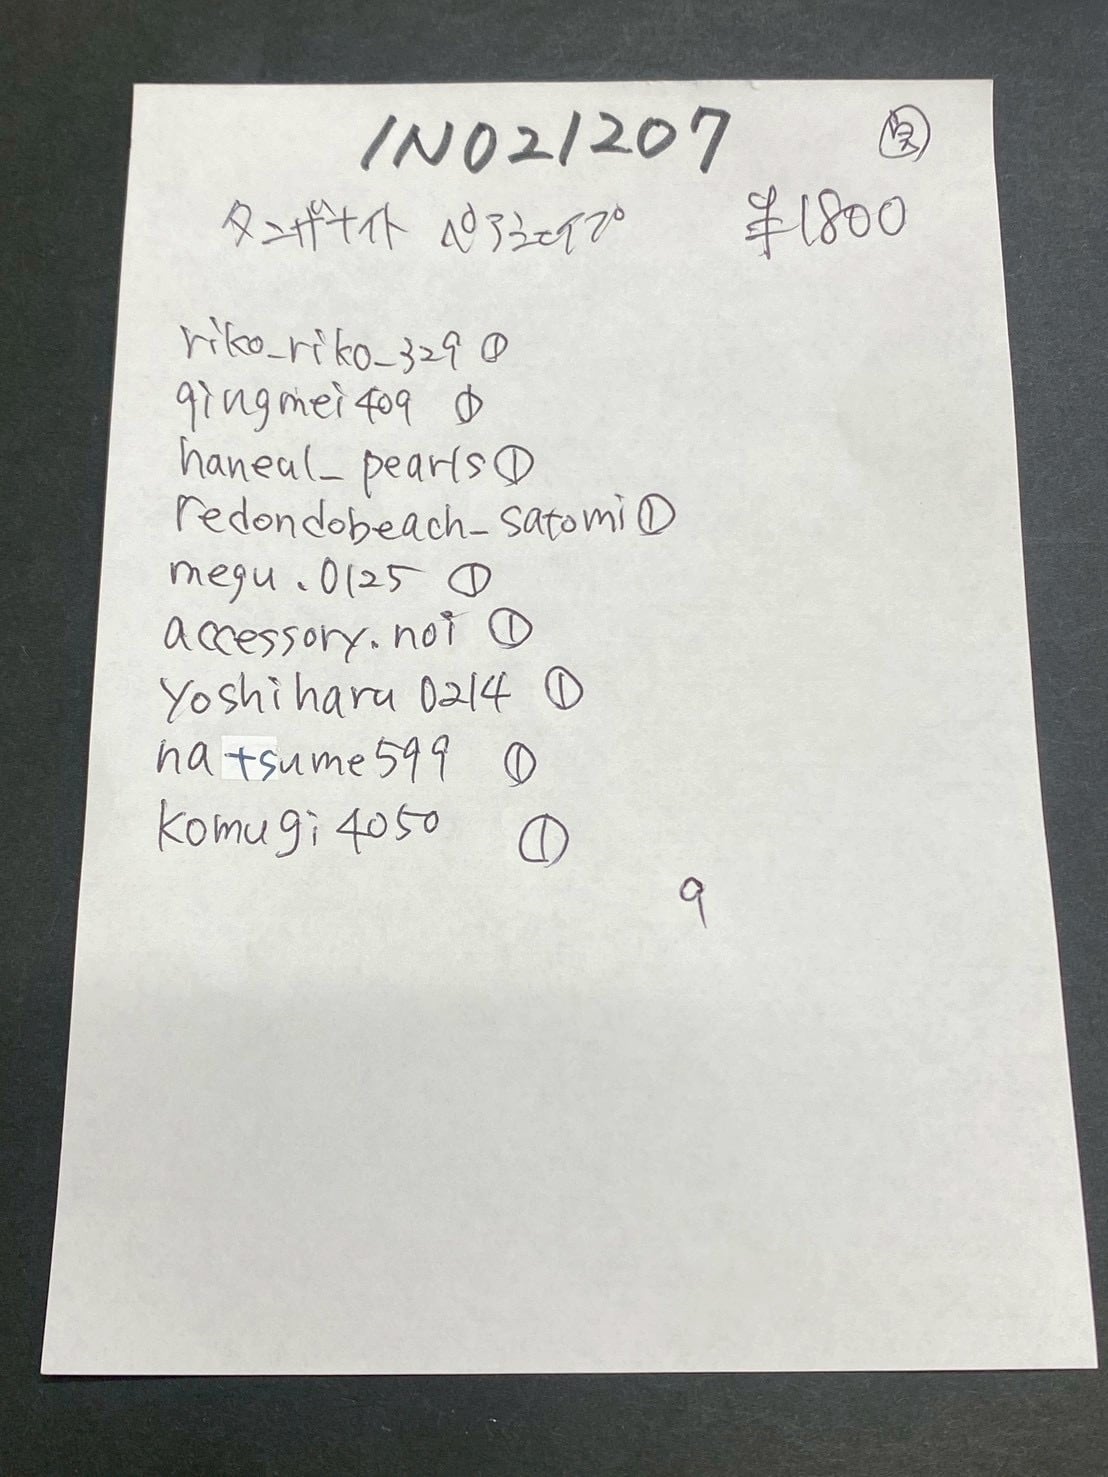 IN021207
タンザナイト ペアシェイプ ¥1800
riko_riko_329 ①
qingmei409 ①
haneul_pearls ①
redondobeach_satomi ①
megu.0125 ①
accessory.noi ①
yoshiharu0214 ①
natsume599 ①
komugi4050 ①
9